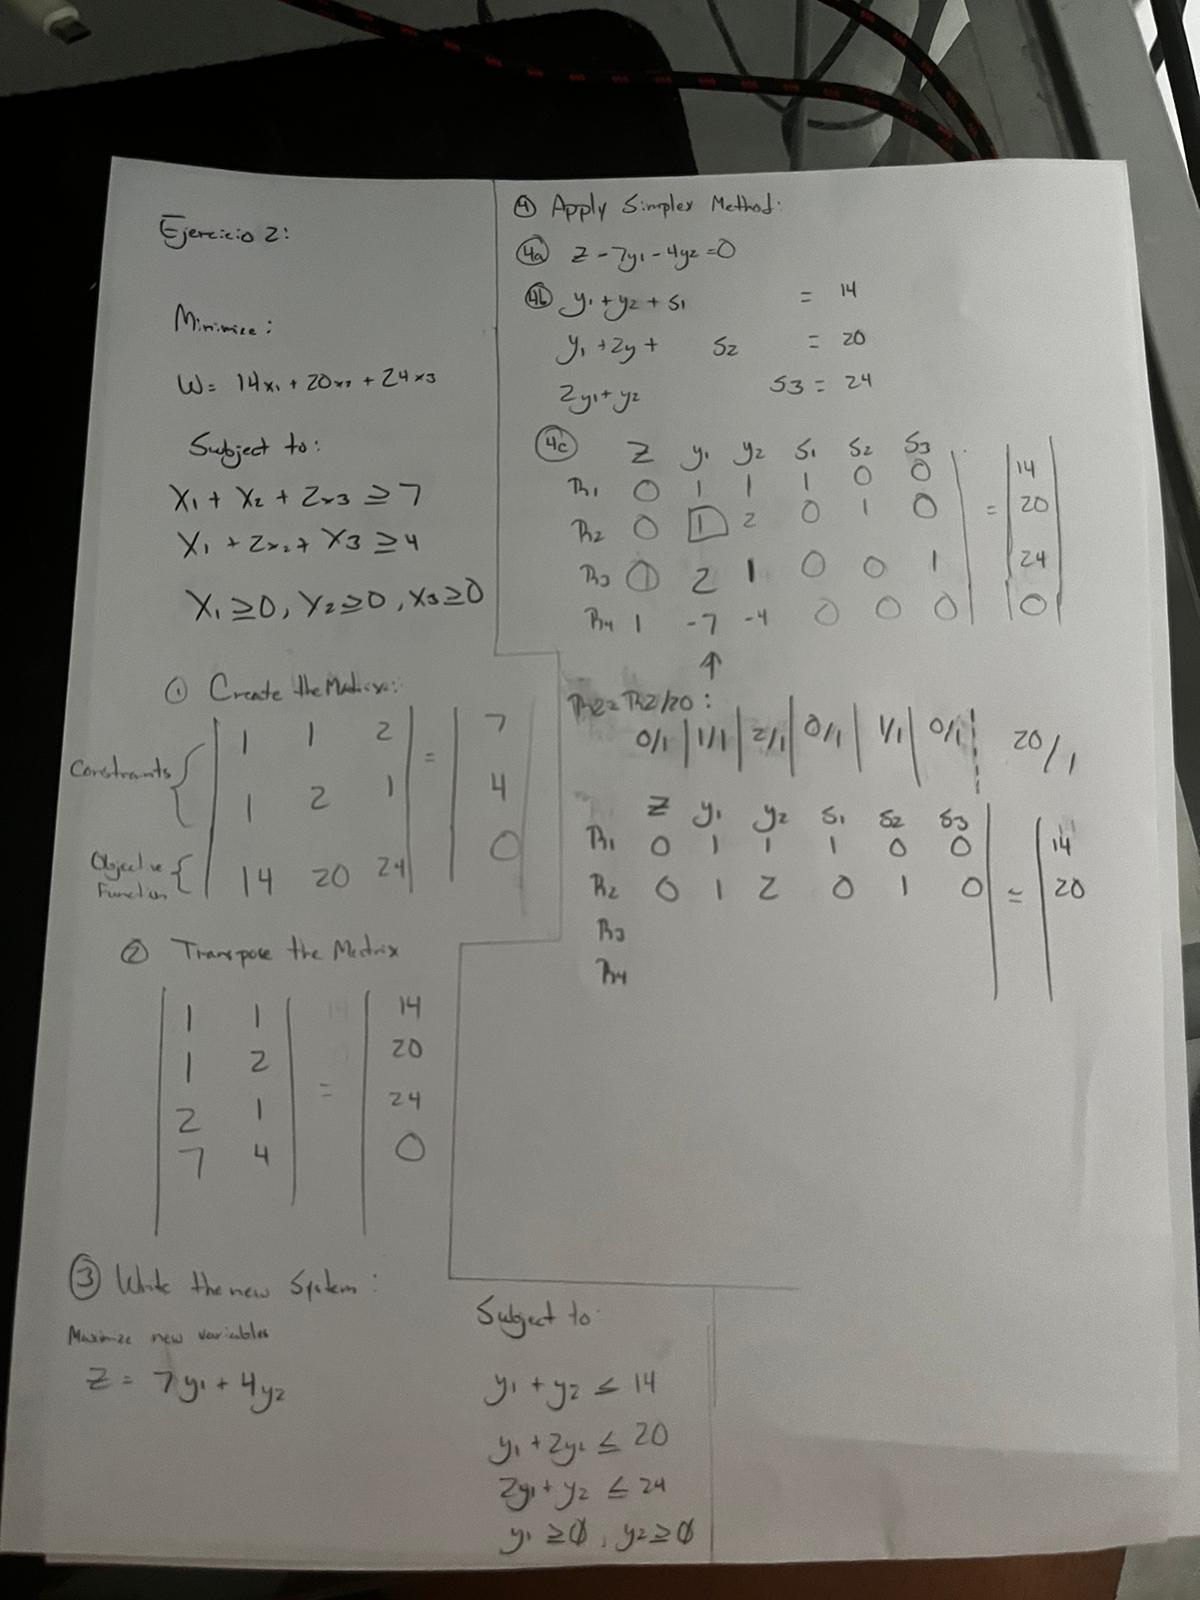 Ejercicio 2:
Minimize:
W= 14x1 + 20x2 + 24x3
Subject to:
X1 + X2 + 2x3 ≥ 7
X1 + 2x2 + X3 ≥ 4
X1 ≥0, X2≥0, X3≥0
① Create the Matrix:
Constraints { | 1 1 2 | = | 7
1 2 1 4
Objective Function { 14 20 24 0
② Transpose the Matrix
| 1 1 | = | 14
1 2 20
2 1 24
7 4 0
③ Write the new System:
Maximize new variables
Z = 7y1 + 4y2
Subject to:
y1 + y2 ≤ 14
y1 + 2y2 ≤ 20
2y1 + y2 ≤ 24
y1 ≥0, y2≥0
④ Apply Simplex Method:
4a Z - 7y1 - 4y2 = 0
4b y1 + y2 + S1 = 14
y1 + 2y + S2 = 20
2y1 + y2 S3 = 24
4c Z y1 y2 S1 S2 S3
R1 0 1 1 1 0 0 | = | 14 |
R2 0 1 2 0 1 0 20
R3 0 2 1 0 0 1 24
R4 1 -7 -4 0 0 0 0
↑
R2=R2/20:
0/1 | 1/1 | 2/1 | 0/1 | 1/1 | 0/1 20/1
Z y1 y2 S1 S2 S3
R1 0 1 1 1 0 0 | = | 14
R2 0 1 2 0 1 0 20
R3
R4